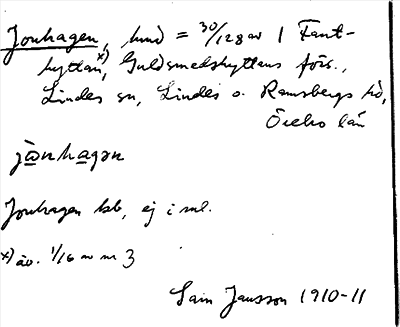 Jonhagen, hmd = 30/128 av 1 Fant-
hyttan x), Guldsmedshyttans förs.,
Lindes sn, Lindes o. Ramsbergs hd,
Örebro län
jà̱nha̱gən
Jonhagen kb, ej i ml.
x) äv. 1/16 av nr 3
Sam Jansson 1910-11